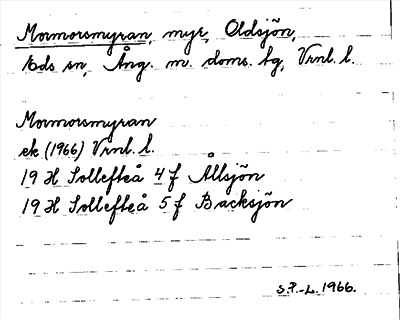 Mormorsmyran, myr, Oldsjön,
Eds sn, Ång. m. doms. hg, Vrnl. l.
Mormorsmyran
ek (1966) Vrnl. l.
19 H Sollefteå 4 f Ållsjön
19 H Sollefteå 5 f Backsjön
S.P.-L. 1966.